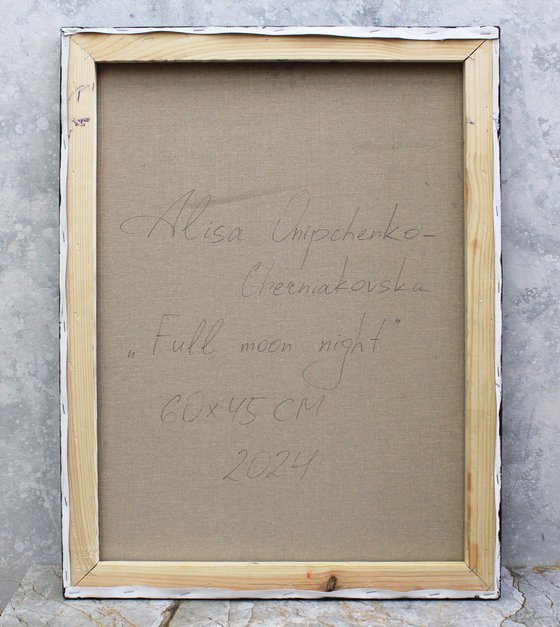 Alisa Onipchenko-
Cherniakovska
„Full moon night"
60x45 CM
2024